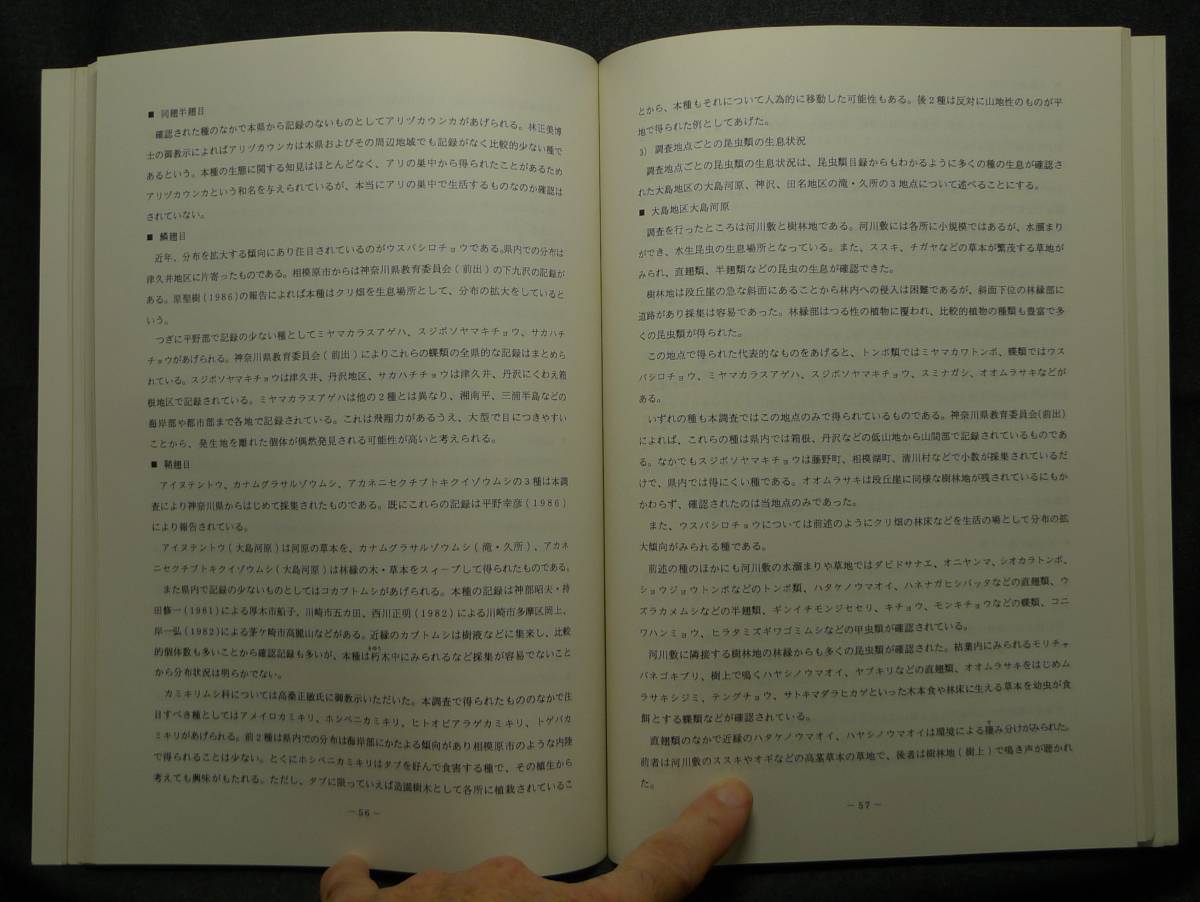 ■ 同翅半翅目
確認された種のなかで本県から記録のないものとしてアリヅカウンカがあげられる。林正美博
士の御教示によればアリヅカウンカは本県およびその周辺地域でも記録がなく比較的少ない種で
あるという。本種の生態に関する知見はほとんどなく、アリの巣中から得られたことがあるため
アリヅカウンカという和名を与えられているが、本当にアリの巣中で生活するものなのか確認は
されていない。
■ 鱗翅目
近年、分布を拡大する傾向にあり注目されているのがウスバシロチョウである。県内での分布は
津久井地区に片寄ったものである。相模原市からは神奈川県教育委員会(前出)の下九沢の記録が
ある。原聖樹(1986)の報告によれば本種はクリ畑を生息場所として、分布の拡大をしていると
いう。
つぎに平野部で記録の少ない種としてミヤマカラスアゲハ、スジボソヤマキチョウ、サカハチ
チョウがあげられる。神奈川県教育委員会(前出)によりこれらの蝶類の全県的な記録はまとめら
れている。スジボソヤマキチョウは津久井、丹沢地区、サカハチチョウは津久井、丹沢にくわえ箱
根地区で記録されている。ミヤマカラスアゲハは他の2種とは異なり、湘南平、三浦半島などの
海岸部や都市部まで各地で記録されている。これは飛翔力があるうえ、大型で目につきやすい
ことから、発生地を離れた個体が偶然発見される可能性が高いと考えられる。
■ 鞘翅目
アイヌテントウ、カナムグラサルゾウムシ、アカネニセクチブトキクイゾウムシの3種は本調
査により神奈川県からはじめて採集されたものである。既にこれらの記録は平野幸彦(1986)
により報告されている。
アイヌテントウ(大島河原)は河原の草本を、カナムグラサルゾウムシ(滝・久所)、アカネ
ニセクチブトキクイゾウムシ(大島河原)は林縁の木・草本をスィープして得られたものである。
また県内で記録の少ないものとしてはコカブトムシがあげられる。本種の記録は神部昭夫・持
田脩一(1981)による厚木市船子、川崎市五カ田、西川正明(1982)による川崎市多摩区岡上、
岸一弘(1982)による茅ケ崎市高麗山などがある。近縁のカブトムシは樹液などに集来し、比較
的個体数も多いことから確認記録も多いが、本種は朽木中にみられるなど採集が容易でないこと
から分布状況は明らかでない。
カミキリムシ科については高桑正敏氏に御教示いただいた。本調査で得られたもののなかで注
目すべき種としてはアメイロカミキリ、ホシベニカミキリ、ヒトオビアラゲカミキリ、トゲバカ
ミキリがあげられる。前2種は県内での分布は海岸部にかたよる傾向があり相模原市のような内陸
で得られることは少ない。とくにホシベニカミキリはタブを好んで食害する種で、その植生から
考えても興味がもたれる。ただし、タブに限っていえば造園樹木として各所に植栽されているこ
－56－
とから、本種もそれについて人為的に移動した可能性もある。後2種は反対に山地性のものが平
地で得られた例としてあげた。
3) 調査地点ごとの昆虫類の生息状況
調査地点ごとの昆虫類の生息状況は、昆虫類目録からもわかるように多くの種の生息が確認さ
れた大島地区の大島河原、神沢、田名地区の滝・久所の3地点について述べることにする。
■ 大島地区大島河原
調査を行ったところは河川敷と樹林地である。河川敷には各所に小規模ではあるが、水溜まり
ができ、水生昆虫の生息場所となっている。また、ススキ、チガヤなどの草本が繁茂する草地が
みられ、直翅類、半翅類などの昆虫の生息が確認できた。
樹林地は段丘崖の急な斜面にあることから林内への侵入は困難であるが、斜面下位の林縁部に
道路があり採集は容易であった。林縁部はつる性の植物に覆われ、比較的植物の種類も豊富で多
くの昆虫類が得られた。
この地点で得られた代表的なものをあげると、トンボ類ではミヤマカワトンボ、蝶類ではウス
バシロチョウ、ミヤマカラスアゲハ、スジボソヤマキチョウ、スミナガシ、オオムラサキなどが
ある。
いずれの種も本調査ではこの地点のみで得られているものである。神奈川県教育委員会(前出)
によれば、これらの種は県内では箱根、丹沢などの低山地から山間部で記録されているものであ
る。なかでもスジボソヤマキチョウは藤野町、相模湖町、清川村などで小数が採集されているだ
けで、県内では得にくい種である。オオムラサキは段丘崖に同様な樹林地が残されているにもか
かわらず、確認されたのは当地点のみであった。
また、ウスバシロチョウについては前述のようにクリ畑の林床などを生活の場として分布の拡
大傾向がみられる種である。
前述の種のほかにも河川敷の水溜まりや草地ではダビドサナエ、オニヤンマ、シオカラトンボ、
ショウジョウトンボなどのトンボ類、ハタケノウマオイ、ハネナガヒシバッタなどの直翅類、ウ
ズラカメムシなどの半翅類、ギンイチモンジセセリ、キチョウ、モンキチョウなどの蝶類、コニ
ワハンミョウ、ヒラタミズギワゴミムシなどの甲虫類が確認されている。
河川敷に隣接する樹林地の林縁からも多くの昆虫が確認された。枯葉内にみられるモリチャ
バネゴキブリ、樹上で鳴くハヤシノウマオイ、ヤブキリなどの直翅類、オオムラサキをはじめム
ラサキシジミ、テングチョウ、サトキマダラヒカゲといった木本食や林床に生える草本を幼虫が食
餌とする蝶類などが確認されている。
直翅類のなかで近縁のハタケノウマオイ、ハヤシノウマオイは環境による棲み分けがみられた。
前者は河川敷のススキやオギなどの高茎草本の草地で、後者は樹林地(樹上)で鳴き声が聴かれ
た。
－57－